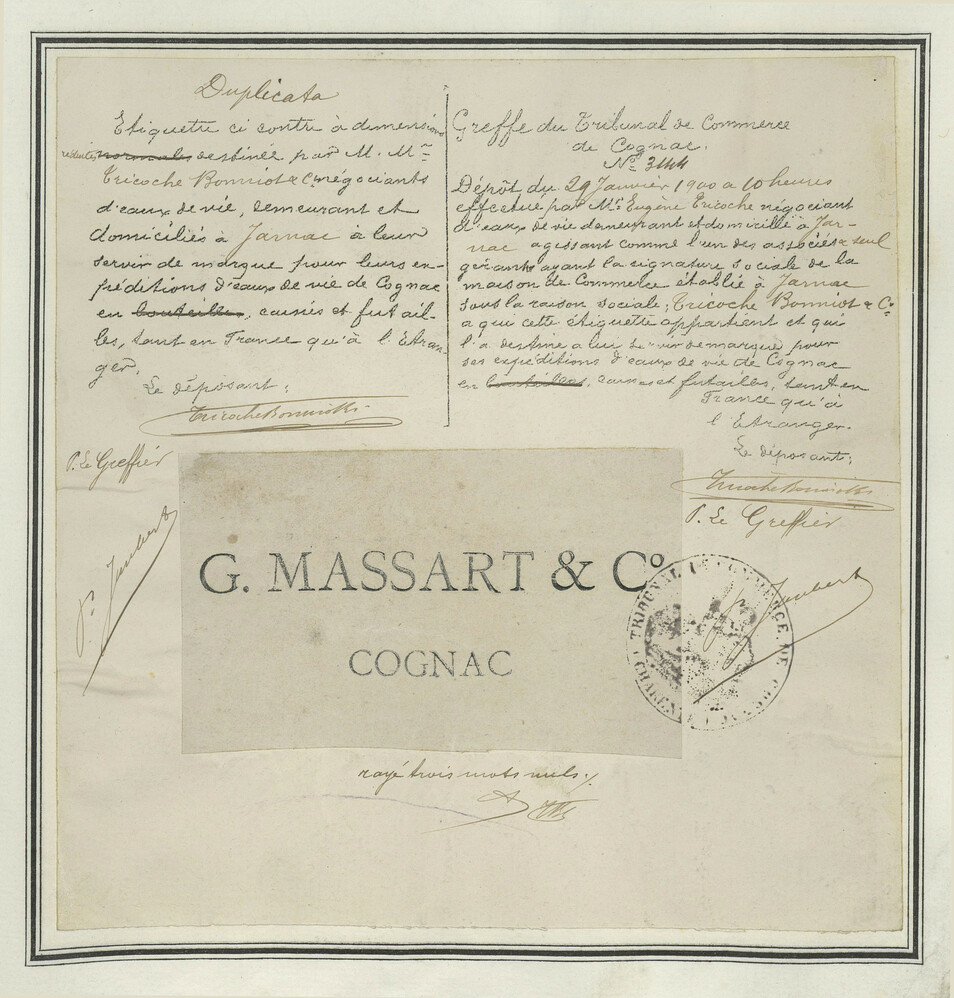 Duplicata
Etiquette ci contre à dimensions
réduites normales destinée par M. Mrs
Tricoche Bonniot & Cie négociants
d'eaux de vie, demeurant et
domiciliés à Jarnac à leur
servir de marque pour leurs ex-
péditions d'eaux de vie de Cognac
en bouteilles, caisses et futail-
les, tant en France qu'à l'Etran-
ger.
Le déposant:
Tricoche Bonniot & Cie
P. Le Greffier
Greffe du Tribunal de Commerce
de Cognac.
No 3144
Dépôt du 29 Janvier 1900 à 10 heures
effectué par Mr Eugène Tricoche négociant
d'eaux de vie demeurant et domicilié à Jar-
nac agissant comme l'un des associés & seul
gérant ayant la signature sociale de la
maison de Commerce établie à Jarnac
sous la raison sociale: Tricoche Bonniot & Ce
a qui cette étiquette appartient et qui
l'a destinée a lui servir de marque pour
ses expéditions d'eaux de vie de Cognac
en bouteilles, caisses et futailles, tant en
France qu'à
l'Etranger.
Le déposant:
Tricoche Bonniot & Cie
P. Le Greffier
G. MASSART & Co
COGNAC
TRIBUNAL DE COMMERCE DE
CHARENTE
rayé trois mots nuls:/